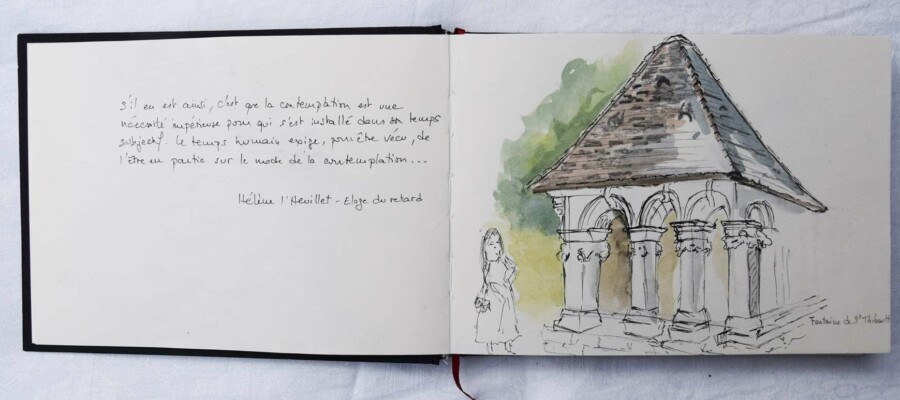 S'il en est ainsi, c'est que la contemplation est une
nécessité impérieuse pour qui s'est installé dans son temps
subjectif. Le temps humain exige, pour être vécu, de
l'être en partie sur le mode de la contemplation...
Hélène l'Heuillet - Eloge du retard
Fontaine de St Thibault